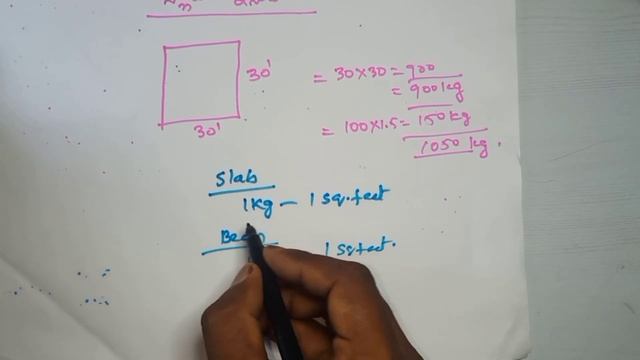 30'
30'
= 30×30 = 900
= 900 kg
= 100×1.5 = 150 kg
1050 kg.
Slab
1 Kg — 1 sq.feet
1 sq feet.